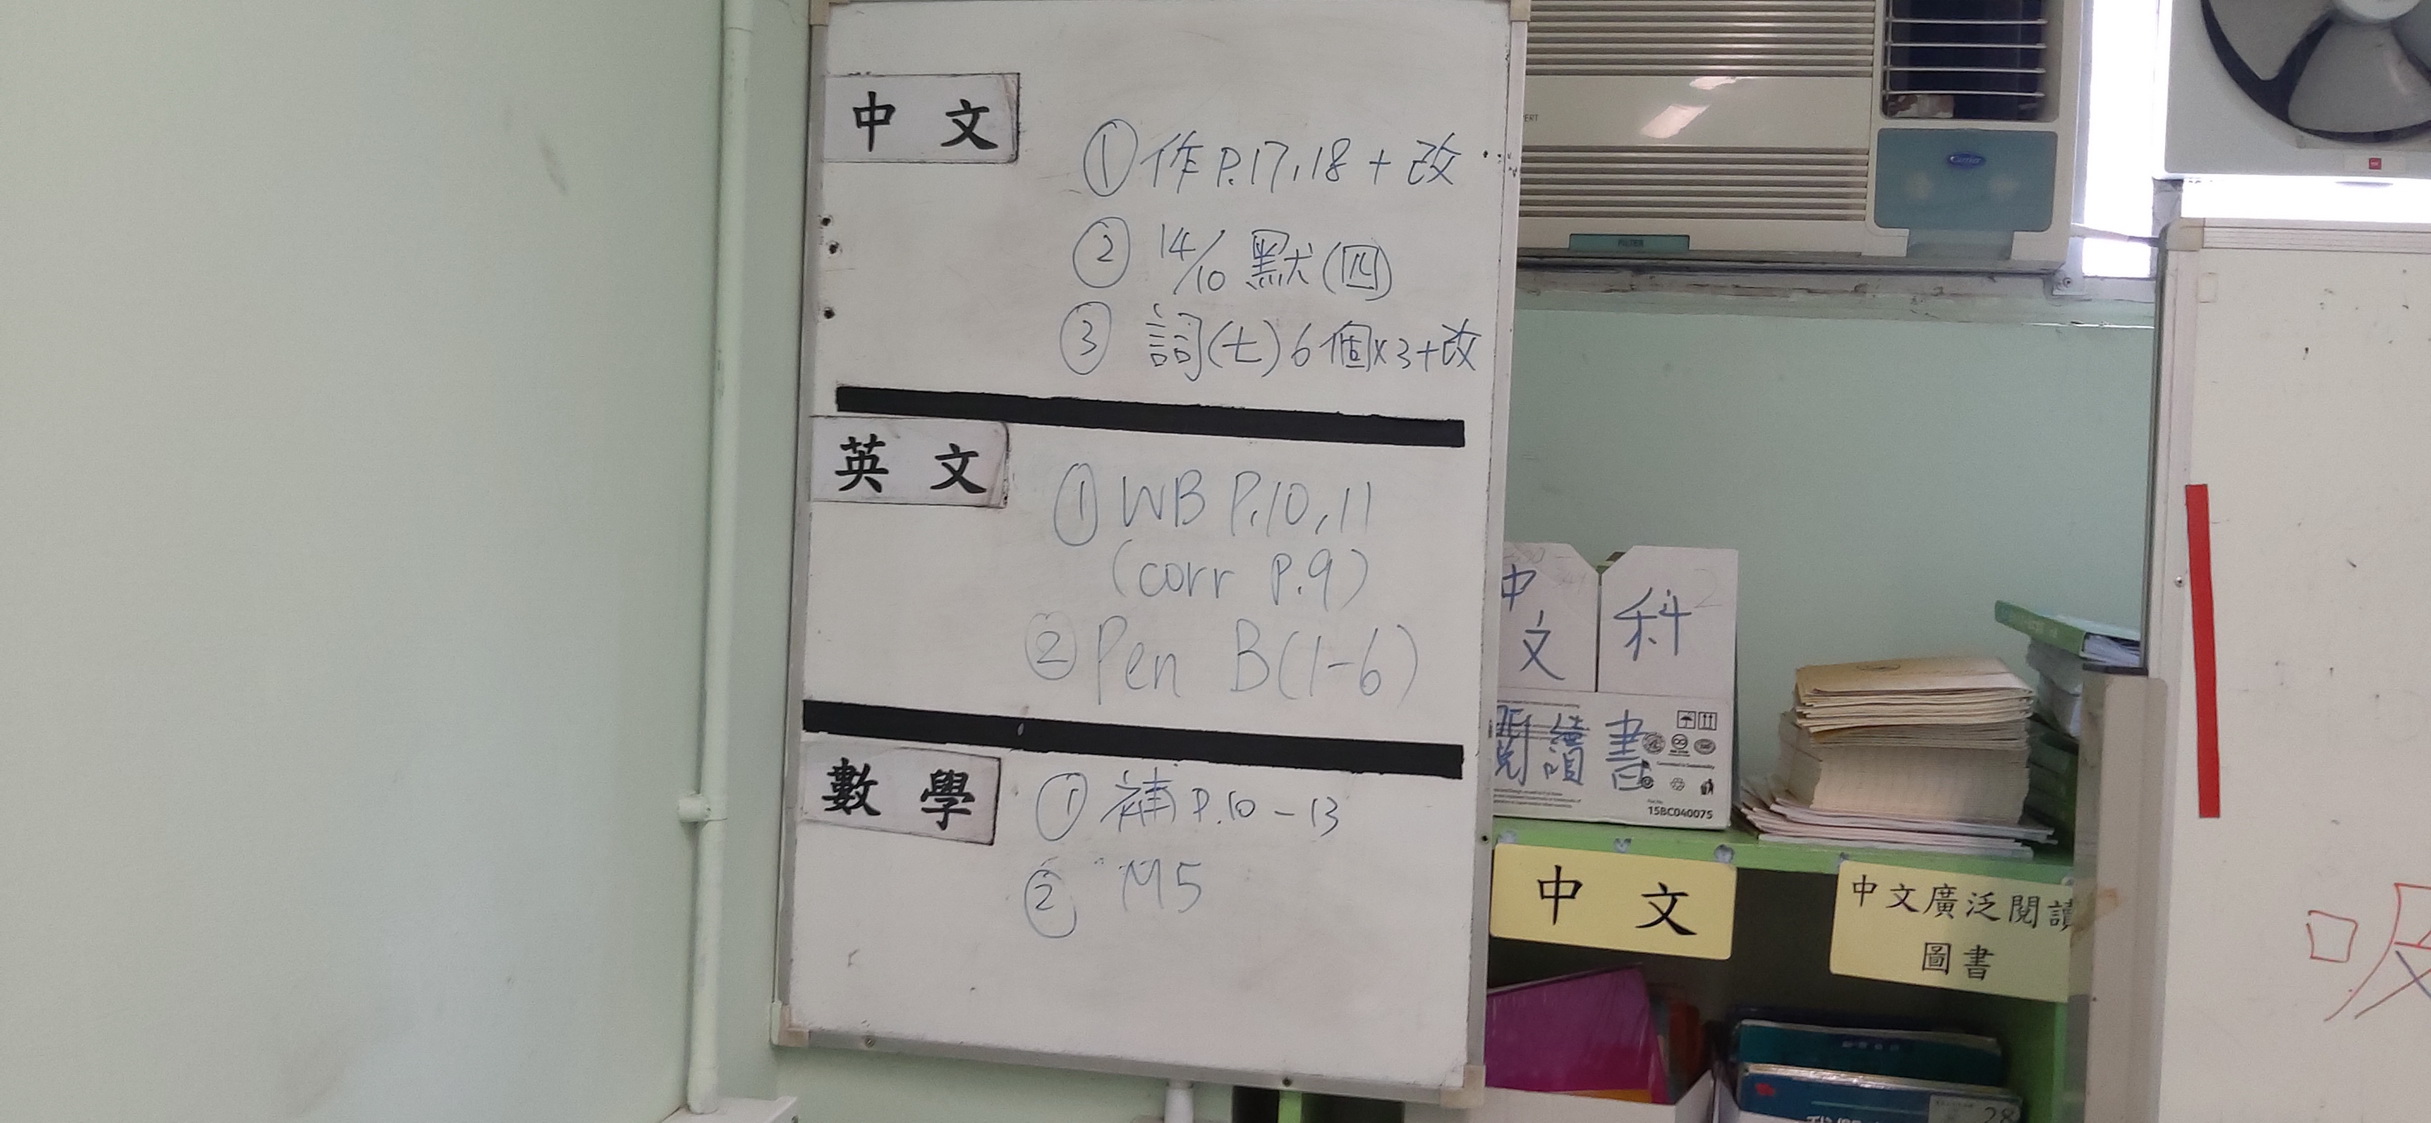 中文
① 作 P.17,18 + 改
② 14/10 默(四)
③ 詞(七) 6個×3+改
英文
① WB P.10,11
(corr P.9)
② Pen B(1-6)
數學
① 補 P.10-13
② M5
Carrier
FILTER
中文
科
閱讀書
15BC040075
中文
中文廣泛閱讀
圖書
吸
28